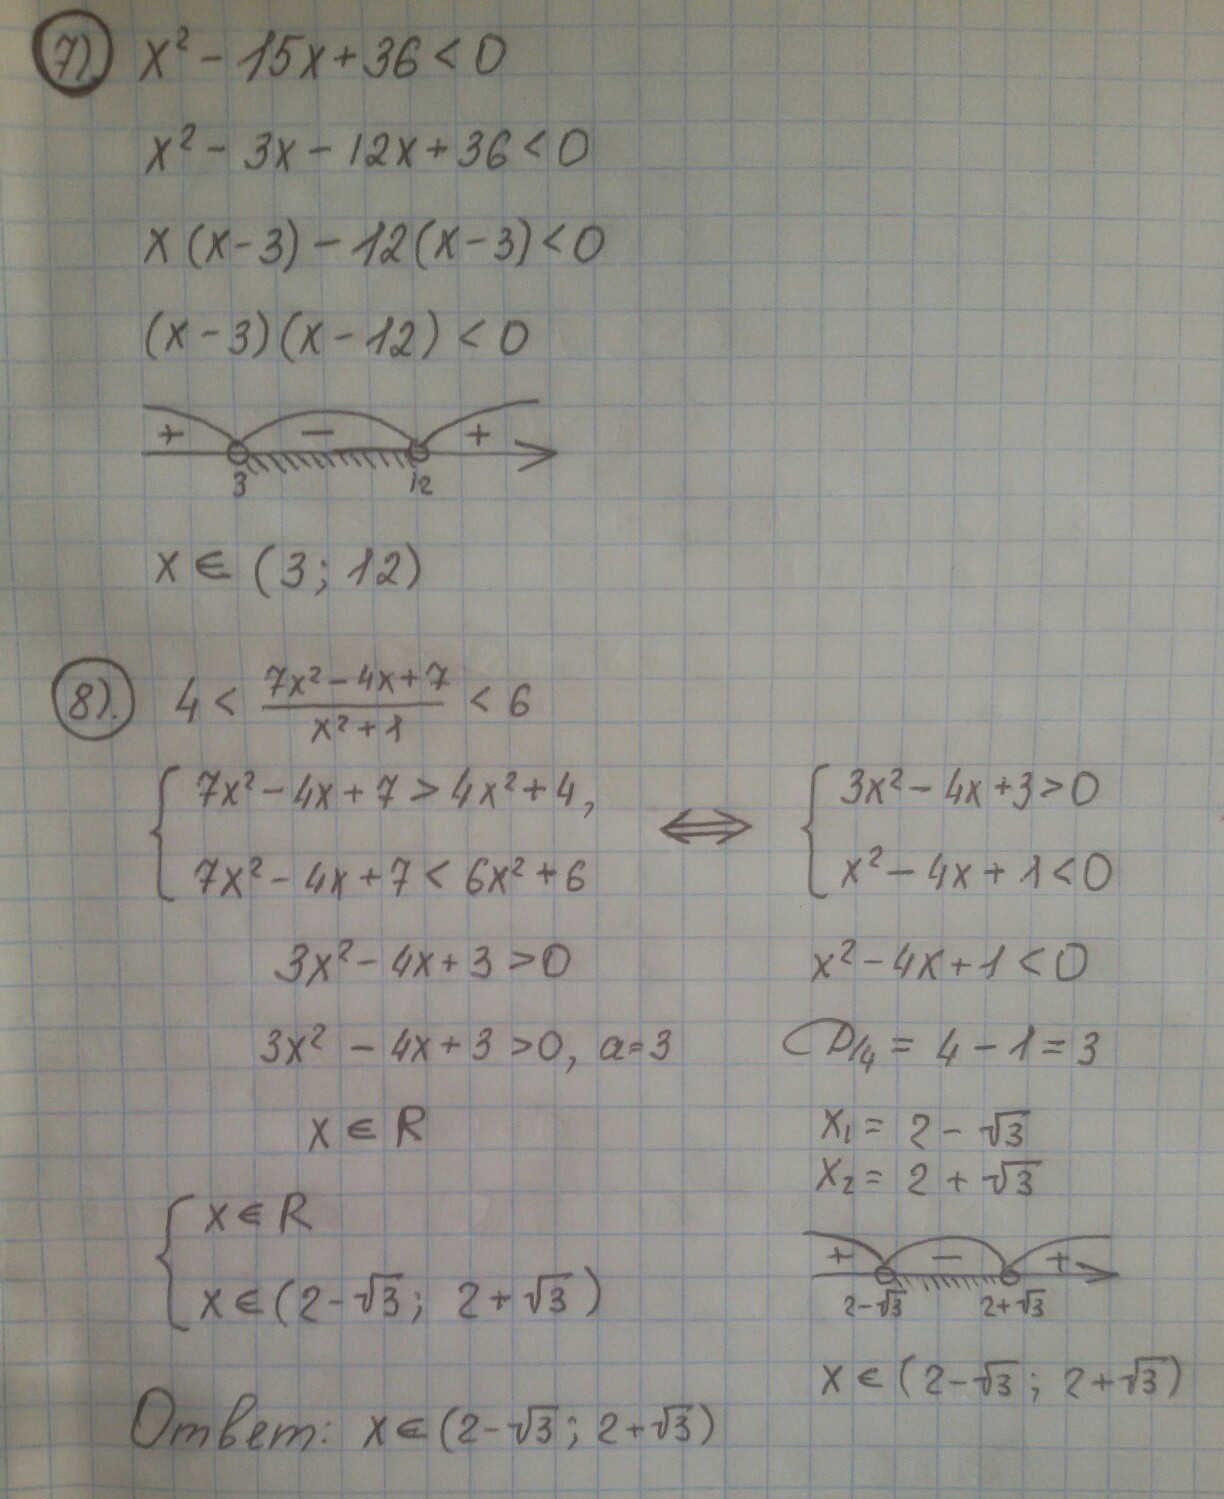 7). x² - 15x + 36 < 0
x² - 3x - 12x + 36 < 0
x (x - 3) - 12 (x - 3) < 0
(x - 3) (x - 12) < 0
+ - +
3 12
x ∈ (3; 12)
8). 4 < (7x² - 4x + 7)/(x² + 1) < 6
{ 7x² - 4x + 7 > 4x² + 4,
7x² - 4x + 7 < 6x² + 6
⟺
{ 3x² - 4x + 3 > 0
x² - 4x + 1 < 0
3x² - 4x + 3 > 0
3x² - 4x + 3 > 0, a = 3
x ∈ R
x² - 4x + 1 < 0
D/4 = 4 - 1 = 3
x₁ = 2 - √3
x₂ = 2 + √3
+ - +
2-√3 2+√3
x ∈ (2-√3; 2+√3)
{ x ∈ R
x ∈ (2-√3; 2+√3)
Ответ: x ∈ (2-√3; 2+√3)